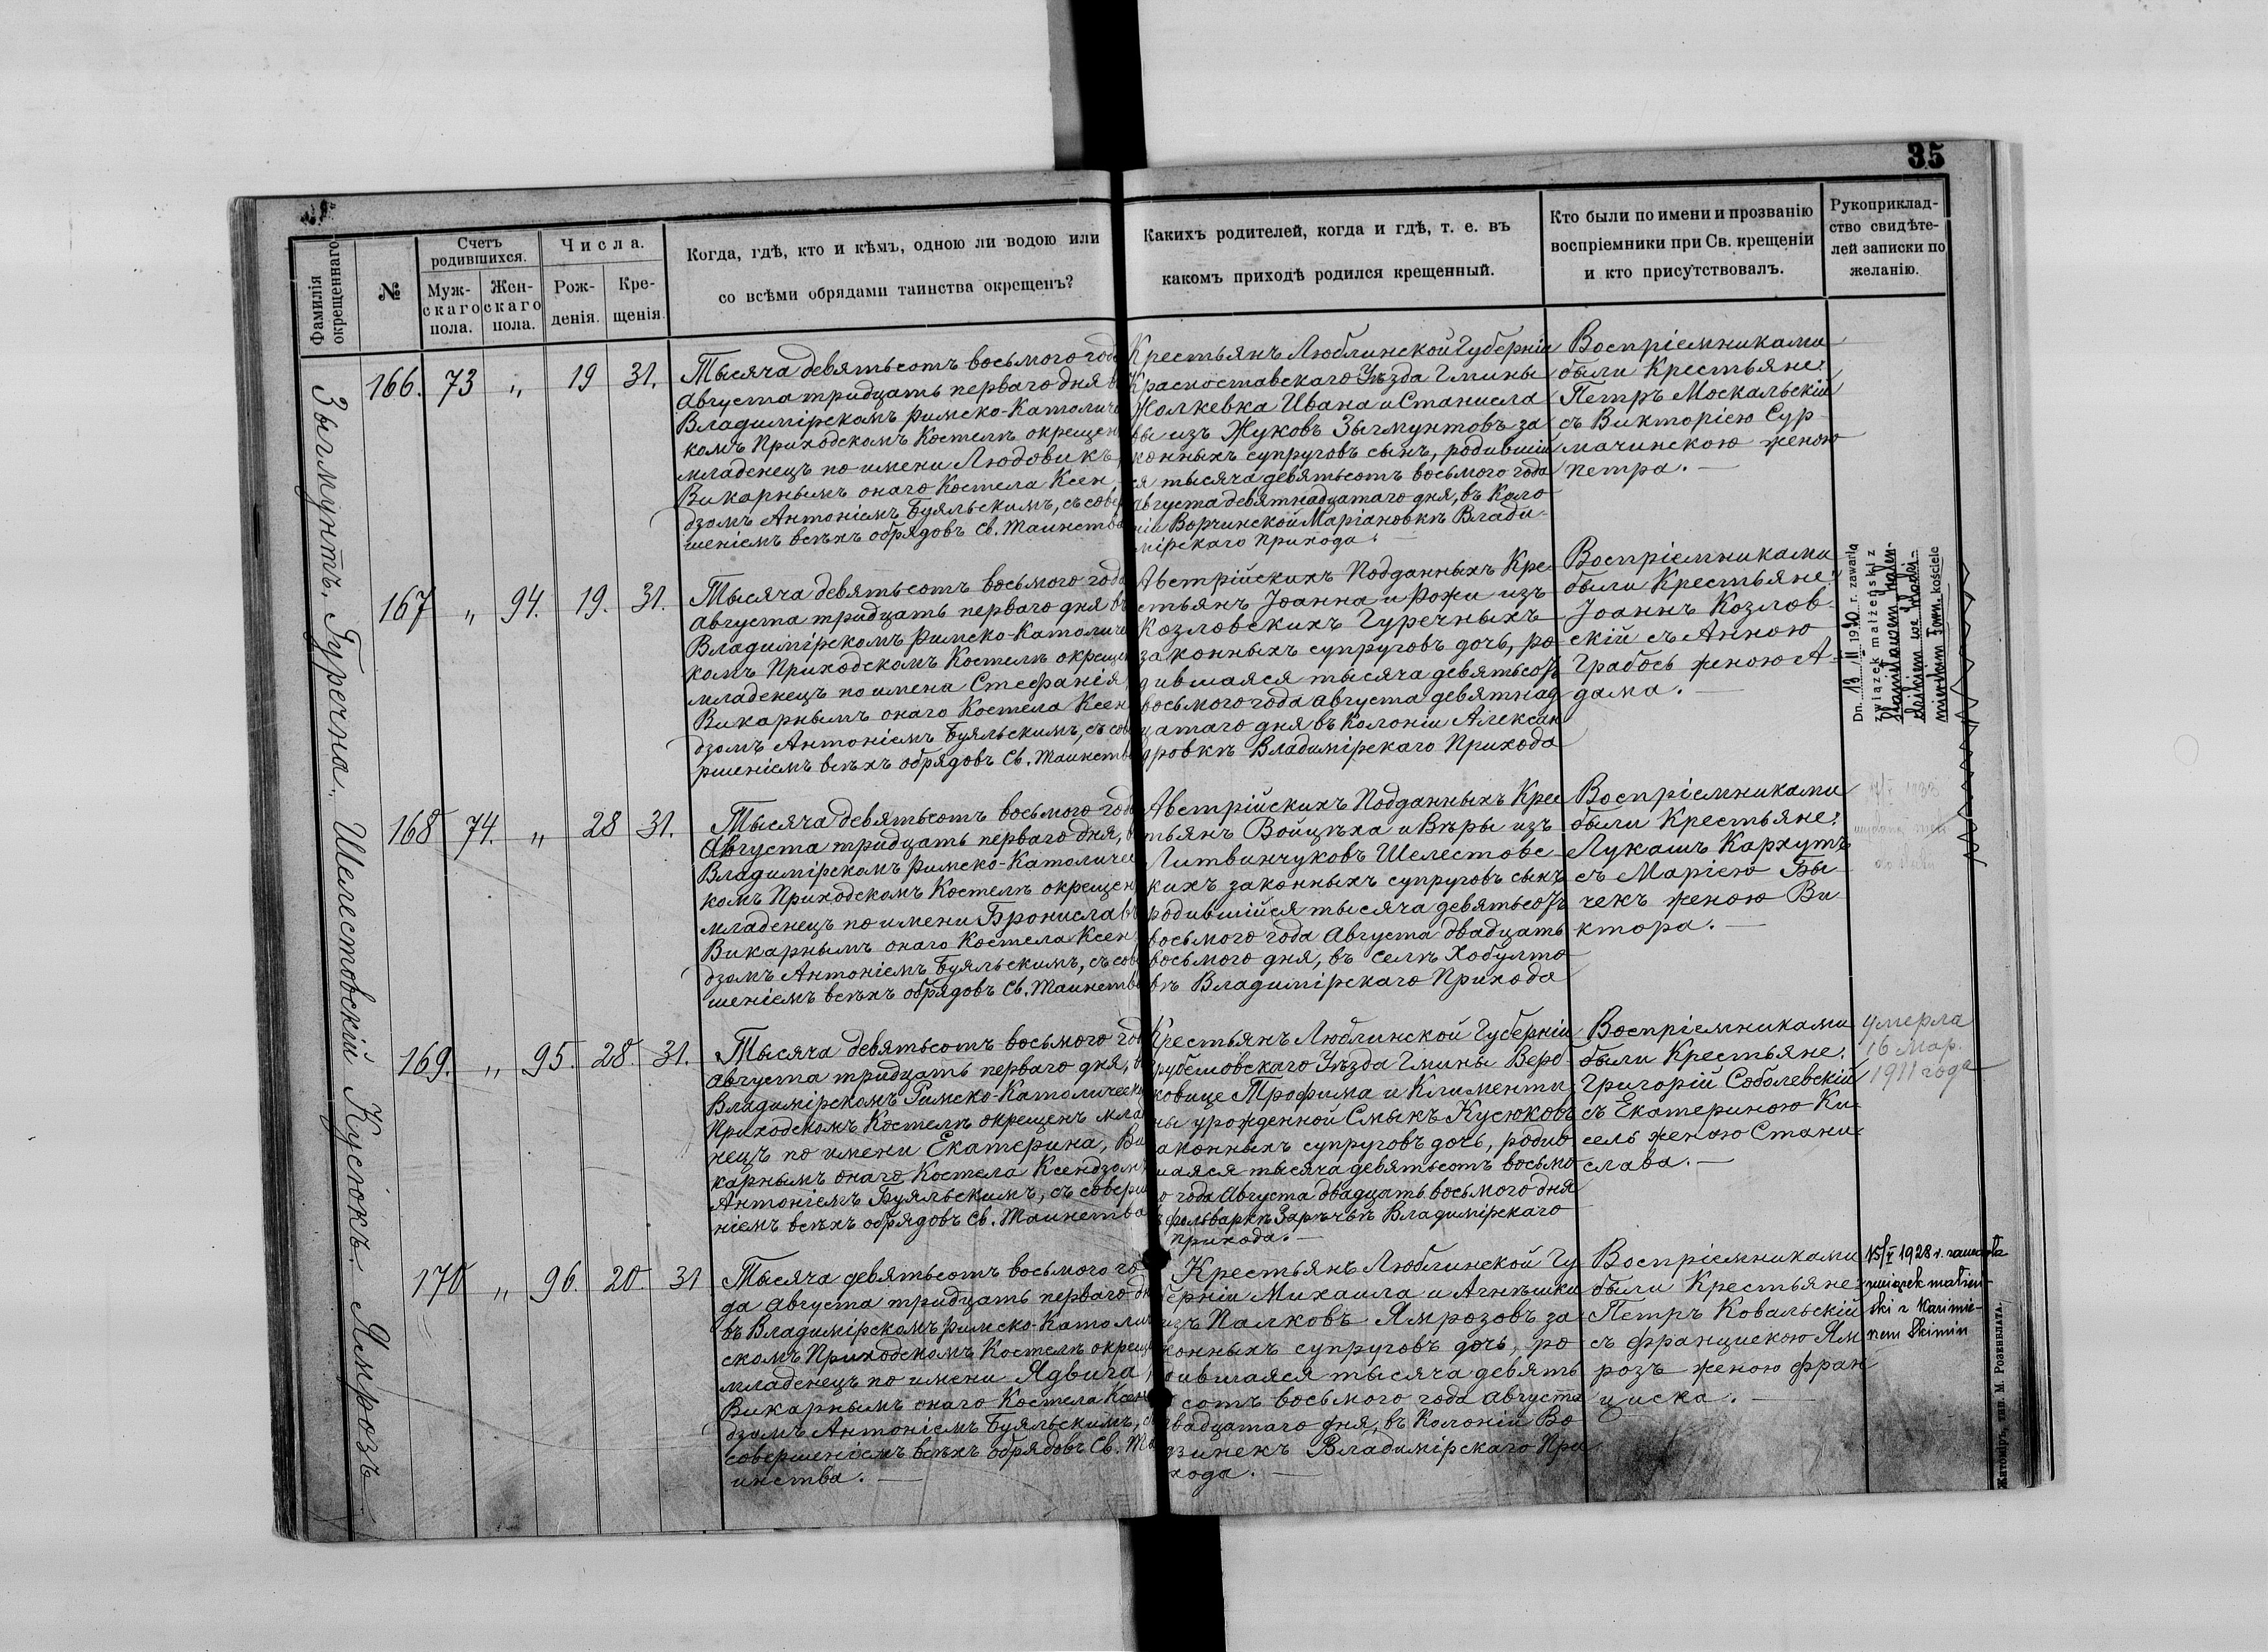 35
Фамилія окрещеннаго
№
Счетъ родившихся.
Муж-
скаго
пола.
Жен-
скаго
пола.
Числа.
Рож-
денія.
Кре-
щенія.
Когда, гдѣ, кто и кѣмъ, одною ли водою или
со всѣми обрядами таинства окрещенъ?
Какихъ родителей, когда и гдѣ, т. е. въ
какомъ приходѣ родился крещенный.
Кто были по имени и прозванію
воспріемники при Св. крещеніи
и кто присутствовалъ.
Рукоприклад-
ство свидѣте-
лей записки по
желанію.
Зыгмунтъ. Гуречна. Шелестовскій Кусюкъ. Ямрозъ
166. 73 „ 19 31.
Тысяча девятьсотъ восьмого года
Августа тридцать перваго дня в
Владимірскомъ Римско-Католиче
комъ Приходскомъ Костелѣ окрещен
младенецъ по имени Людовикъ,
Викарнымъ онаго Костела Ксен
дзомъ Антоніемъ Буяльскимъ, съ совер
шеніемъ всѣхъ обрядовъ Св. Таинства
Крестьянъ Люблинской Губерніи
Красноставскаго Уѣзда Гмины
Жолкевка Ивана и Станисла
вы изъ Жуковъ Зыгмунтовъ за
конныхъ супруговъ сынъ, родившій
ся тысяча девятьсотъ восьмого года
Августа девятнадцатаго дня, въ Коло
ніи Ворчинской Маріановкѣ Влади-
мірскаго Прихода.
Воспріемниками
были Крестьяне:
Петръ Москальскій
съ Викторіею Сур-
мачинскою женою
Петра.
167 „ 94. 19. 31.
Тысяча девятьсотъ восьмого года
Августа тридцать перваго дня въ
Владимірскомъ Римско-Католиче
комъ Приходскомъ Костелѣ окрещен
младенецъ по имена Стефанія,
Викарнымъ онаго Костела Ксен
дзомъ Антоніемъ Буяльскимъ, съ сове
ршеніемъ всѣхъ обрядовъ Св. Таинства
Австрійскихъ Подданныхъ Кре
стьянъ Іоанна и Рожи изъ
Козловскихъ Гуречныхъ
законныхъ супруговъ дочь, ро
дившаяся тысяча девятьсотъ
восьмого года Августа девятнад
цатаго дня въ Колоніи Алексан
дровкѣ Владимірскаго Прихода
Воспріемниками
были Крестьяне:
Іоаннъ Козлов-
скій съ Анною
Грабосъ женою А-
дама.
Dn. 13 II 1930 r. zawarła
związek małżeński z
we Włodzi-
mierskim kościele
168 74. „ 28 31.
Тысяча девятьсотъ восьмого года
Августа тридцать перваго дня, в
Владимірскомъ Римско-Католичес
комъ Приходскомъ Костелѣ окрещен
младенецъ по имени Брониславъ
Викарнымъ онаго Костела Ксен
дзомъ Антоніемъ Буяльскимъ, съ сове
шеніемъ всѣхъ обрядовъ Св. Таинства
Австрійскихъ Подданныхъ Крес
тьянъ Войцѣха и Вѣры изъ
Литвинчуковъ Шелестовс-
кихъ законныхъ супруговъ сынъ
родившійся тысяча девятьсотъ
восьмого года Августа двадцать
восьмого дня, въ селѣ Хобулто
вѣ Владимірскаго Прихода
Воспріемниками
были Крестьяне:
Лукашъ Кархутъ
съ Маріею Бы
чекъ женою Ви
ктора.
169. „ 95. 28. 31.
Тысяча девятьсотъ восьмого год
Августа тридцать перваго дня, в
Владимірскомъ Римско-Католическ
Приходскомъ Костелѣ окрещенъ мла
нецъ по имени Екатерина, Ви
карнымъ онаго Костела Ксендзом
Антоніемъ Буяльскимъ, съ соверше
ніемъ всѣхъ обрядовъ Св. Таинства
Крестьянъ Люблинской Губерніи
рубешовскаго Уѣзда Гмины Верб
ковице Трофима и Клименти
ны урожденной Смыкъ Кусюковъ
законныхъ супруговъ дочь, родив
шаяся тысяча девятьсотъ восьмо
го года Августа двадцать восьмого дня
фольваркѣ Зарѣчьѣ Владимірскаго
Прихода.
Воспріемниками
были Крестьяне:
Григорій Соболевскій
съ Екатериною Ки-
сель женою Стани-
слава.
Умерла
16 мар.
1911 года
170 „ 96. 20. 31
Тысяча девятьсотъ восьмого го
да Августа тридцать перваго дн
въ Владимірскомъ Римско-Католич
скомъ Приходскомъ Костелѣ окреще
младенецъ по имени Ядвига,
Викарнымъ онаго Костела Ксен
дзомъ Антоніемъ Буяльскимъ, съ
совершеніемъ всѣхъ обрядовъ Св. Та
инства.
Крестьянъ Люблинской Гу
берніи Михаила и Агнѣшки
изъ Палковъ Ямрозовъ за
конныхъ супруговъ дочь, ро
дившаяся тысяча девять
сотъ восьмого года Августа
двадцатаго дня, въ Колоніи Во
дзинекъ Владимірскаго При
хода.
Воспріемниками
были Крестьяне:
Петръ Ковальскій
съ Францискою Ям
розъ женою Фран
циска.
15/V 1928 r. zawarła
związek małżeń-
ski z Kazimie-
rzem Skimin
Житоміръ, тип. М. Розенблата.